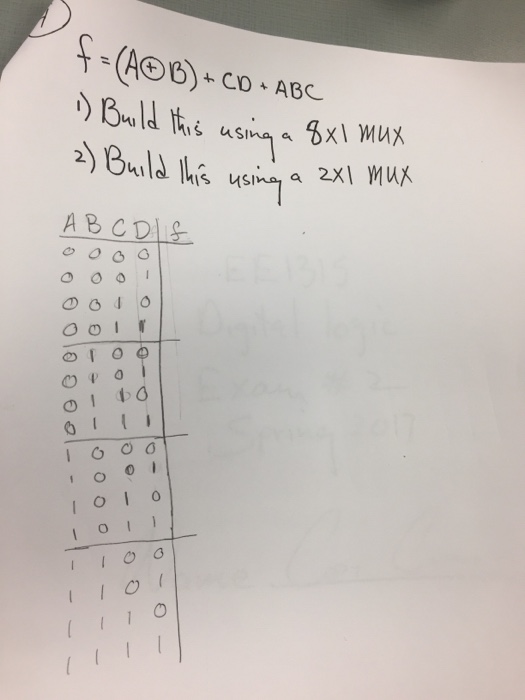 1)
f = (A⊕B) + CD + ABC
1) Build this using a 8x1 mux
2) Build this using a 2x1 mux
A B C D | f
0 0 0 0
0 0 0 1
0 0 1 0
0 0 1 1
0 1 0 0
0 1 0 1
0 1 1 0
0 1 1 1
1 0 0 0
1 0 0 1
1 0 1 0
1 0 1 1
1 1 0 0
1 1 0 1
1 1 1 0
1 1 1 1
EE1315
Digital logic
Exam # 2
Spring 2017